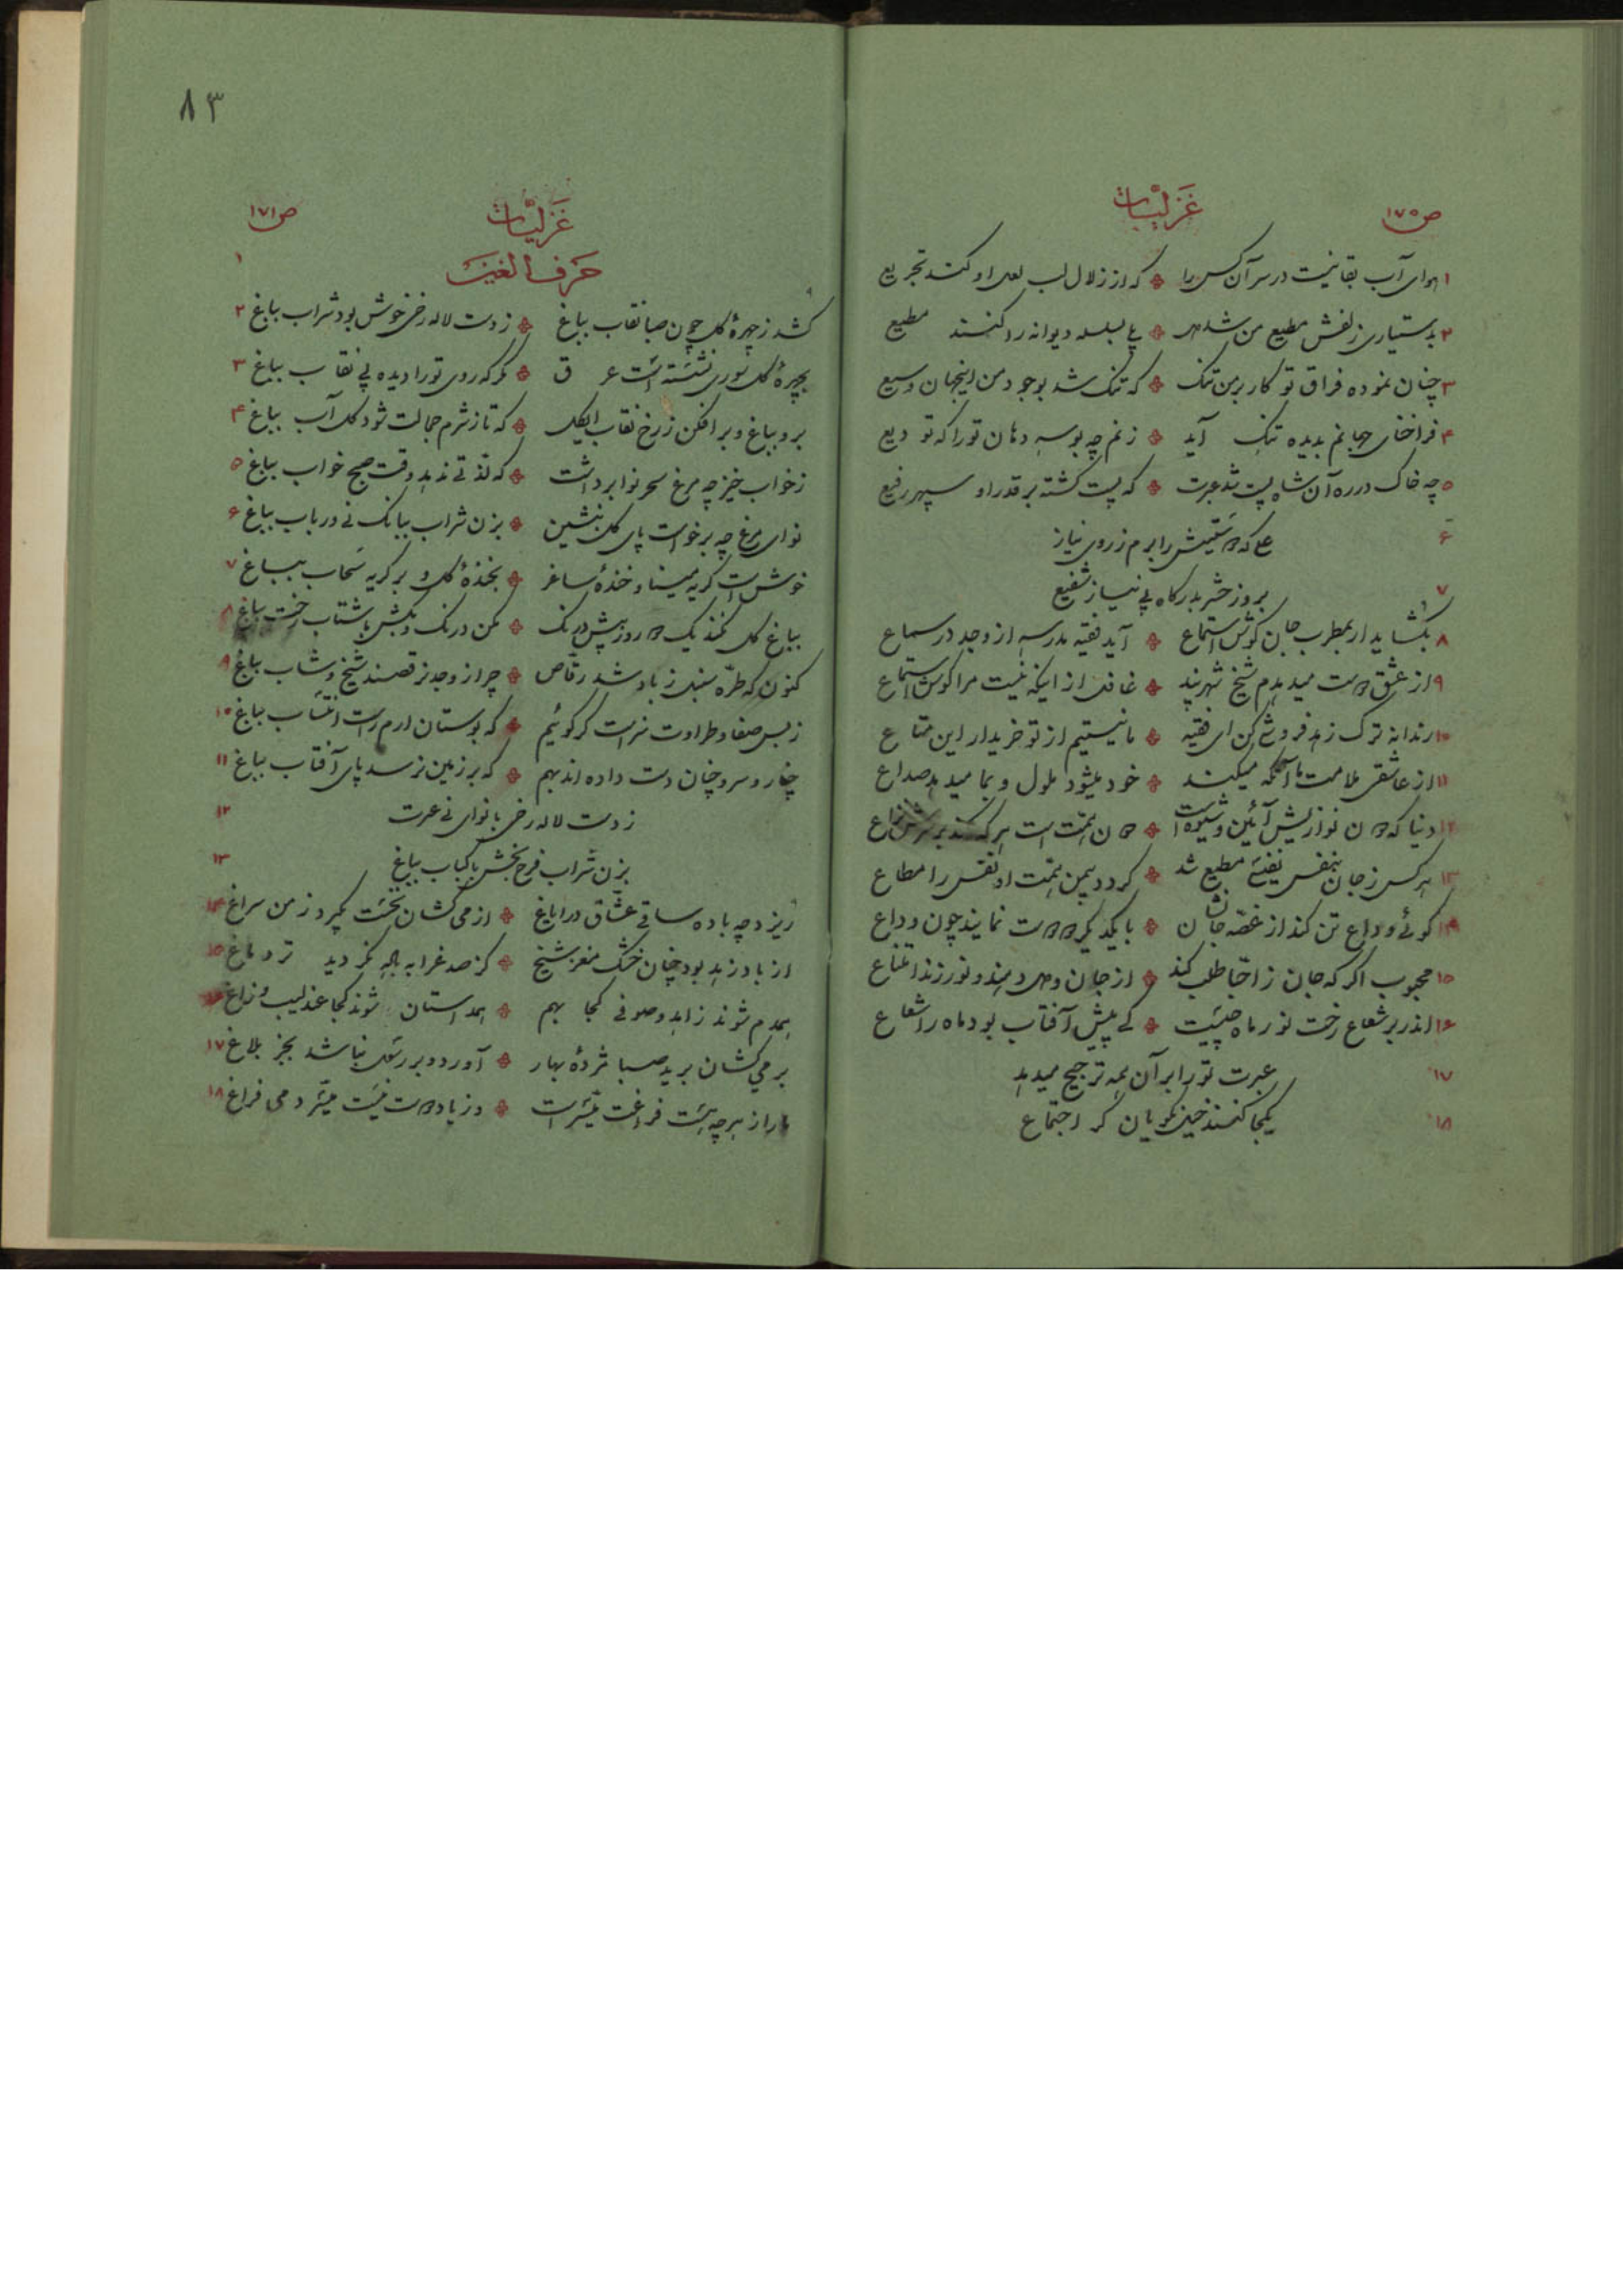 ص ۱۷۰
غزلیات
۱ هوای آب بقا نیست در سر آن کس را ❖ که از زلال لب لعل او کنند تجریع
۲ بدستیاری زلفش مطیع من شد دل ❖ بلی بسلسله دیوانه را کنند مطیع
۳ چنان نموده فراق تو کار بر من تنک ❖ که تنک شد بوجود من اینجهان وسیع
۴ فراخنای جهانم بدیده تنک آید ❖ زنم چه بوسه دهان تو را که تودیع
۵ چه خاک در ره آن شاه پست شد عبرت ❖ که پست کشته بر قدر او سپهر رفیع
۶ علی که دوستیش را برم ز روی نیاز
۷ بروز حشر بدرکاه بی نیاز شفیع
۸ بکشاید ار بمطرب جان کوش استماع ❖ آید فقیه مدرسه از وجد در سماع
۹ از عشق دوست میدهدم شیخ شهر پند ❖ غافل از اینکه نیست مرا کوش استماع
۱۰ رندانه ترک زهد فروشی کن ای فقیه ❖ ما نیستیم از تو خریدار این متاع
۱۱ از عاشقی ملامت ما آنکه میکند ❖ خود میشود ملول و بما میدهد صداع
۱۲ دنیا که دون نوازیش آئین و شیوه است ❖ دون همت است هر که کند بر سرش نزاع
۱۳ هر کس ز جان بنفس نفیسی مطیع شد ❖ کردد بیمن همت او نفس را مطاع
۱۴ کوئی وداع تن کند از غصه جانشان ❖ با یکدیکر دو دوست نمایند چون وداع
۱۵ محبوب اکر که جان ز احبا طلب کند ❖ از جان و دل دهند و نورزند امتناع
۱۶ اندر بر شعاع رخت نور ماه چیست ❖ کی پیش آفتاب بود ماه را شعاع
۱۷ عبرت تو را بر آن همه ترجیح میدهد
۱۸ یکجا کنند خیل نکویان کر اجتماع
۸۳
ص ۱۷۱
غزلیات
۱ حرف الغین
کشد ز چهرهٔ کل چون صبا نقاب بباغ ❖ ز دست لاله رخی خوش بود شراب بباغ ۲
بچهرهٔ کل سوری نشسته است عرق ❖ مکر که روی تو را دیده بی نقاب بباغ ۳
برو بباغ و بر افکن ز رخ نقاب ایکل ❖ که تا ز شرم جمالت شود کل آب بباغ ۴
ز خواب خیز چه مرغ سحر نوا برداشت ❖ که لذتی ندهد وقت صبح خواب بباغ ۵
نوای مرغ چه برخواست پای کل بنشین ❖ بزن شراب ببانک نی و رباب بباغ ۶
خوش است کریه مینا و خندهٔ ساغر ❖ بخندهٔ کل و بر کریه سحاب بباغ ۷
بباغ کل نکند یک دو روز بیش درنک ❖ مکن درنک و بکش باشتاب رخت بباغ ۸
کنون که طرّه سنبل ز باد شد رقاص ❖ چرا ز وجد نرقصند شیخ و شاب بباغ ۹
ز بس صفا و طراوت سزاست کر کوئیم ❖ که بوستان ارم راست انتساب بباغ ۱۰
چنار و سرو چنان دست داده اند بهم ❖ که بر زمین نرسد پای آفتاب بباغ ۱۱
ز دست لاله رخی با نوای نی عبرت ۱۲
بزن شراب فرح بخش با کباب بباغ ۱۳
ریزد چه باده ساقی عشاق در ایاغ ❖ از می کشان نخست بکیرد ز من سراغ ۱۴
از باد زهد بود چنان خشک مغز شیخ ❖ کز صد غرابه باده نکردید تر دماغ ۱۵
همدم شوند زاهد و صوفی کجا بهم ❖ همداستان شوند کجا عندلیب و زاغ ۱۶
بر می کشان برید صبا مژدهٔ بهار ❖ آورد و بر رسول نباشد بجز بلاغ ۱۷
ما را ز هرچه هست فراغت میسّر است ❖ وز یاد دوست نیست میسّر دمی فراغ ۱۸